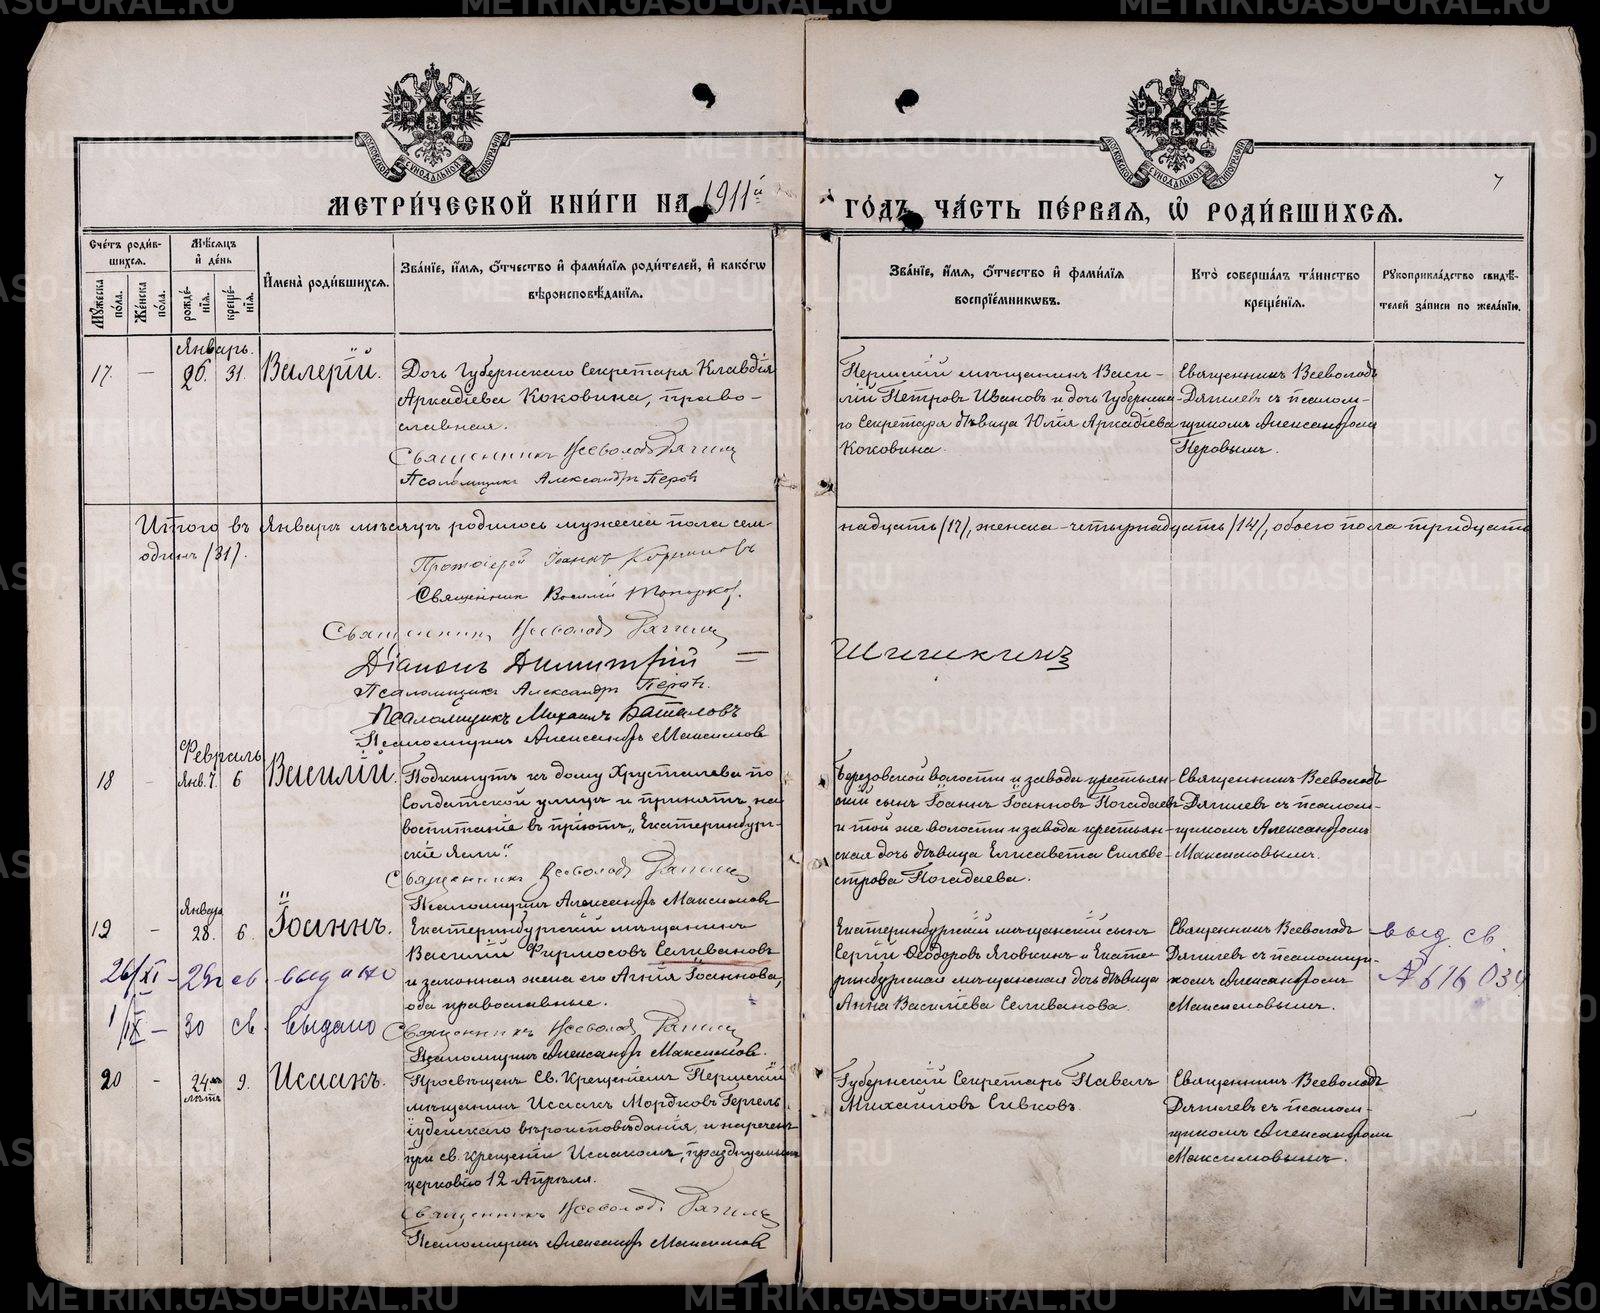 МЕТРИ́ЧЕСКОЙ КНИ́ГИ НА 1911й
ГО́ДЪ, ЧА́СТЬ ПЕ́РВАЯ, Ѽ РОДИ́ВШИХСЯ.
7
МОСКОВСКОЙ СѴНОДАЛЬНОЙ ТИПОГРАФІИ
МОСКОВСКОЙ СѴНОДАЛЬНОЙ ТИПОГРАФІИ
Сче́тъ роди́в-
шихся.
Мѣ́сяцъ
и҆ де́нь
И҆мена̀ роди́вшихся.
Зва́ніе, и҆́мя, ѻ҆́тчество и҆ фами́лія роди́телей, и҆ како́гѡ
вѣроисповѣ́данія.
Зва́ніе, и҆́мя, ѻ҆́тчество и҆ фами́лія
воспріе́мникѡвъ.
Кто̀ соверша́лъ та́инство
креще́нія.
Рꙋкоприкла́дство свидѣ́-
телей за́писи по жела́нію.
Мꙋ́жеска по́ла.
Же́нска по́ла.
рожде́-нія.
креще́-нія.
Январь.
17. — 26. 31. Валерій.
Дочь Губернскаго Секретаря Клавдія
Аркадіева Коковина, право-
славная.
Священникъ Всеволодъ Дягилевъ
Псаломщикъ Александръ Перовъ
Пермскій мѣщанинъ Васи-
лій Петровъ Ивановъ и дочь Губернска-
го Секретаря дѣвица Юлія Аркадіева
Коковина.
Священникъ Всеволодъ
Дягилевъ съ псалом-
щикомъ Александромъ
Перовымъ.
Итого въ Январѣ мѣсяцѣ родилось мужеска пола сем-
надцать /17/, женска - четырнадцать /14/, обоего пола тридцать
одинъ /31/.
Протоіерей Іоаннъ
Священникъ Василій Топорков.
Священникъ Всеволодъ Дягилевъ
Діаконъ Димитрій =
Шишкинъ
Псаломщикъ Александръ Перовъ.
Псаломщикъ Михаилъ Баталовъ
Псаломщикъ Александръ Максимовъ
Февраль
18 - Янв. 7. 6 Василій.
Подкинутъ къ дому Хрусталева по
Солдатской улицѣ и принятъ на
воспитаніе въ пріютъ „Екатеринбург-
скіе Ясли".
Священникъ Всеволодъ Дягилевъ
Псаломщикъ Александръ Максимовъ
Березовской волости и завода крестьян-
скій сынъ Іоаннъ Іоанновъ Погадаевъ
и той же волости и завода крестьян-
ская дочь дѣвица Елисавета Сильве-
строва Погадаева.
Священникъ Всеволодъ
Дягилевъ съ псалом-
щикомъ Александромъ
Максимовымъ.
Января
19 - 28. 6. Іоаннъ.
Екатеринбургскій мѣщанинъ
Василій Фирмосовъ Селивановъ
и законная жена его Агнія Іоаннова,
оба православные.
Священникъ Всеволодъ Дягилевъ
Псаломщикъ Александръ Максимовъ.
26/XI — 25г св. выдано
1/IX — 30 св выдано
Екатеринбургскій мѣщанскій сынъ
Сергій Ѳеодоровъ Яговкинъ и Екате-
ринбургская мѣщанская дочь дѣвица
Анна Василіева Селиванова.
Священникъ Всеволодъ
Дягилевъ съ псаломщи-
комъ Александромъ
Максимовымъ.
выд. св.
№ 616034
20 - 24-хъ лѣтъ 9. Исаакъ.
Просвѣщенъ Св. Крещеніемъ Пермскій
мѣщанинъ Исаакъ Мордковъ Гергель
іудейскаго вѣроисповѣданія, и нареченъ
при св. крещеніи Исаакомъ, празднуемымъ
церковію 12 Апрѣля.
Священникъ Всеволодъ Дягилевъ
Псаломщикъ Александръ Максимовъ
Губернскій Секретарь Павелъ
Михаиловъ Сивковъ.
Священникъ Всеволодъ
Дягилевъ съ псалом-
щикомъ Александромъ
Максимовымъ.
METRIKI.GASO-URAL.RU